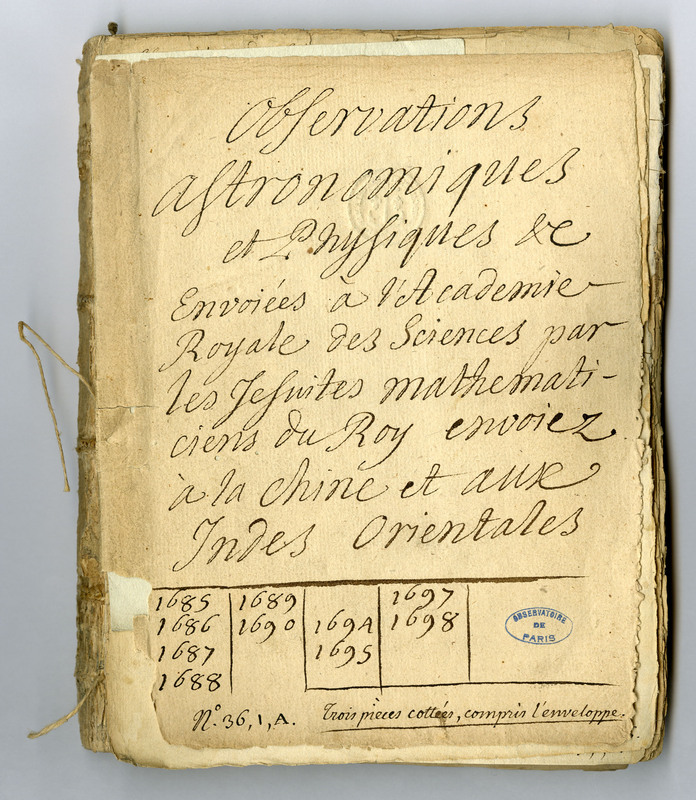 Observations
astronomiques
et Physiques &c
Envoiées à l'Academie
Royale des Sciences par
les Jesuites mathemati-
ciens du Roy envoiez
à la chine et aux
Indes Orientales
1685 1689 1697
1686 1690 1694 1698
1687 1695
1688
OBSERVATOIRE
DE
PARIS
N.º 36, 1, A. Trois pièces cottées, compris l'enveloppe.